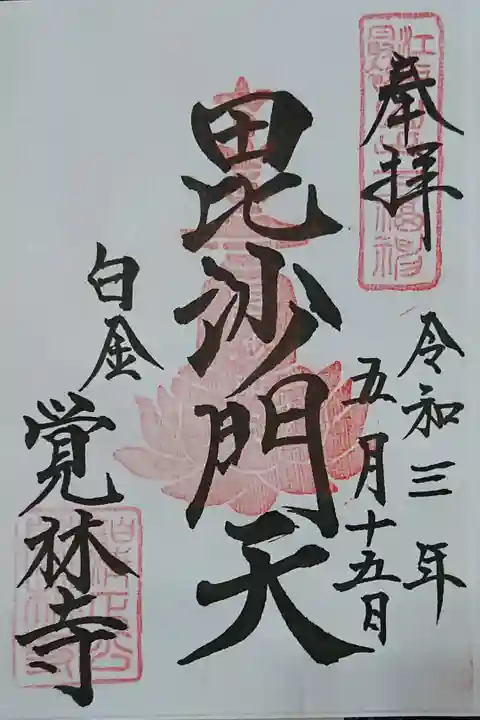 奉拝
令和三年
五月十五日
毘沙門天
白金
覚林寺